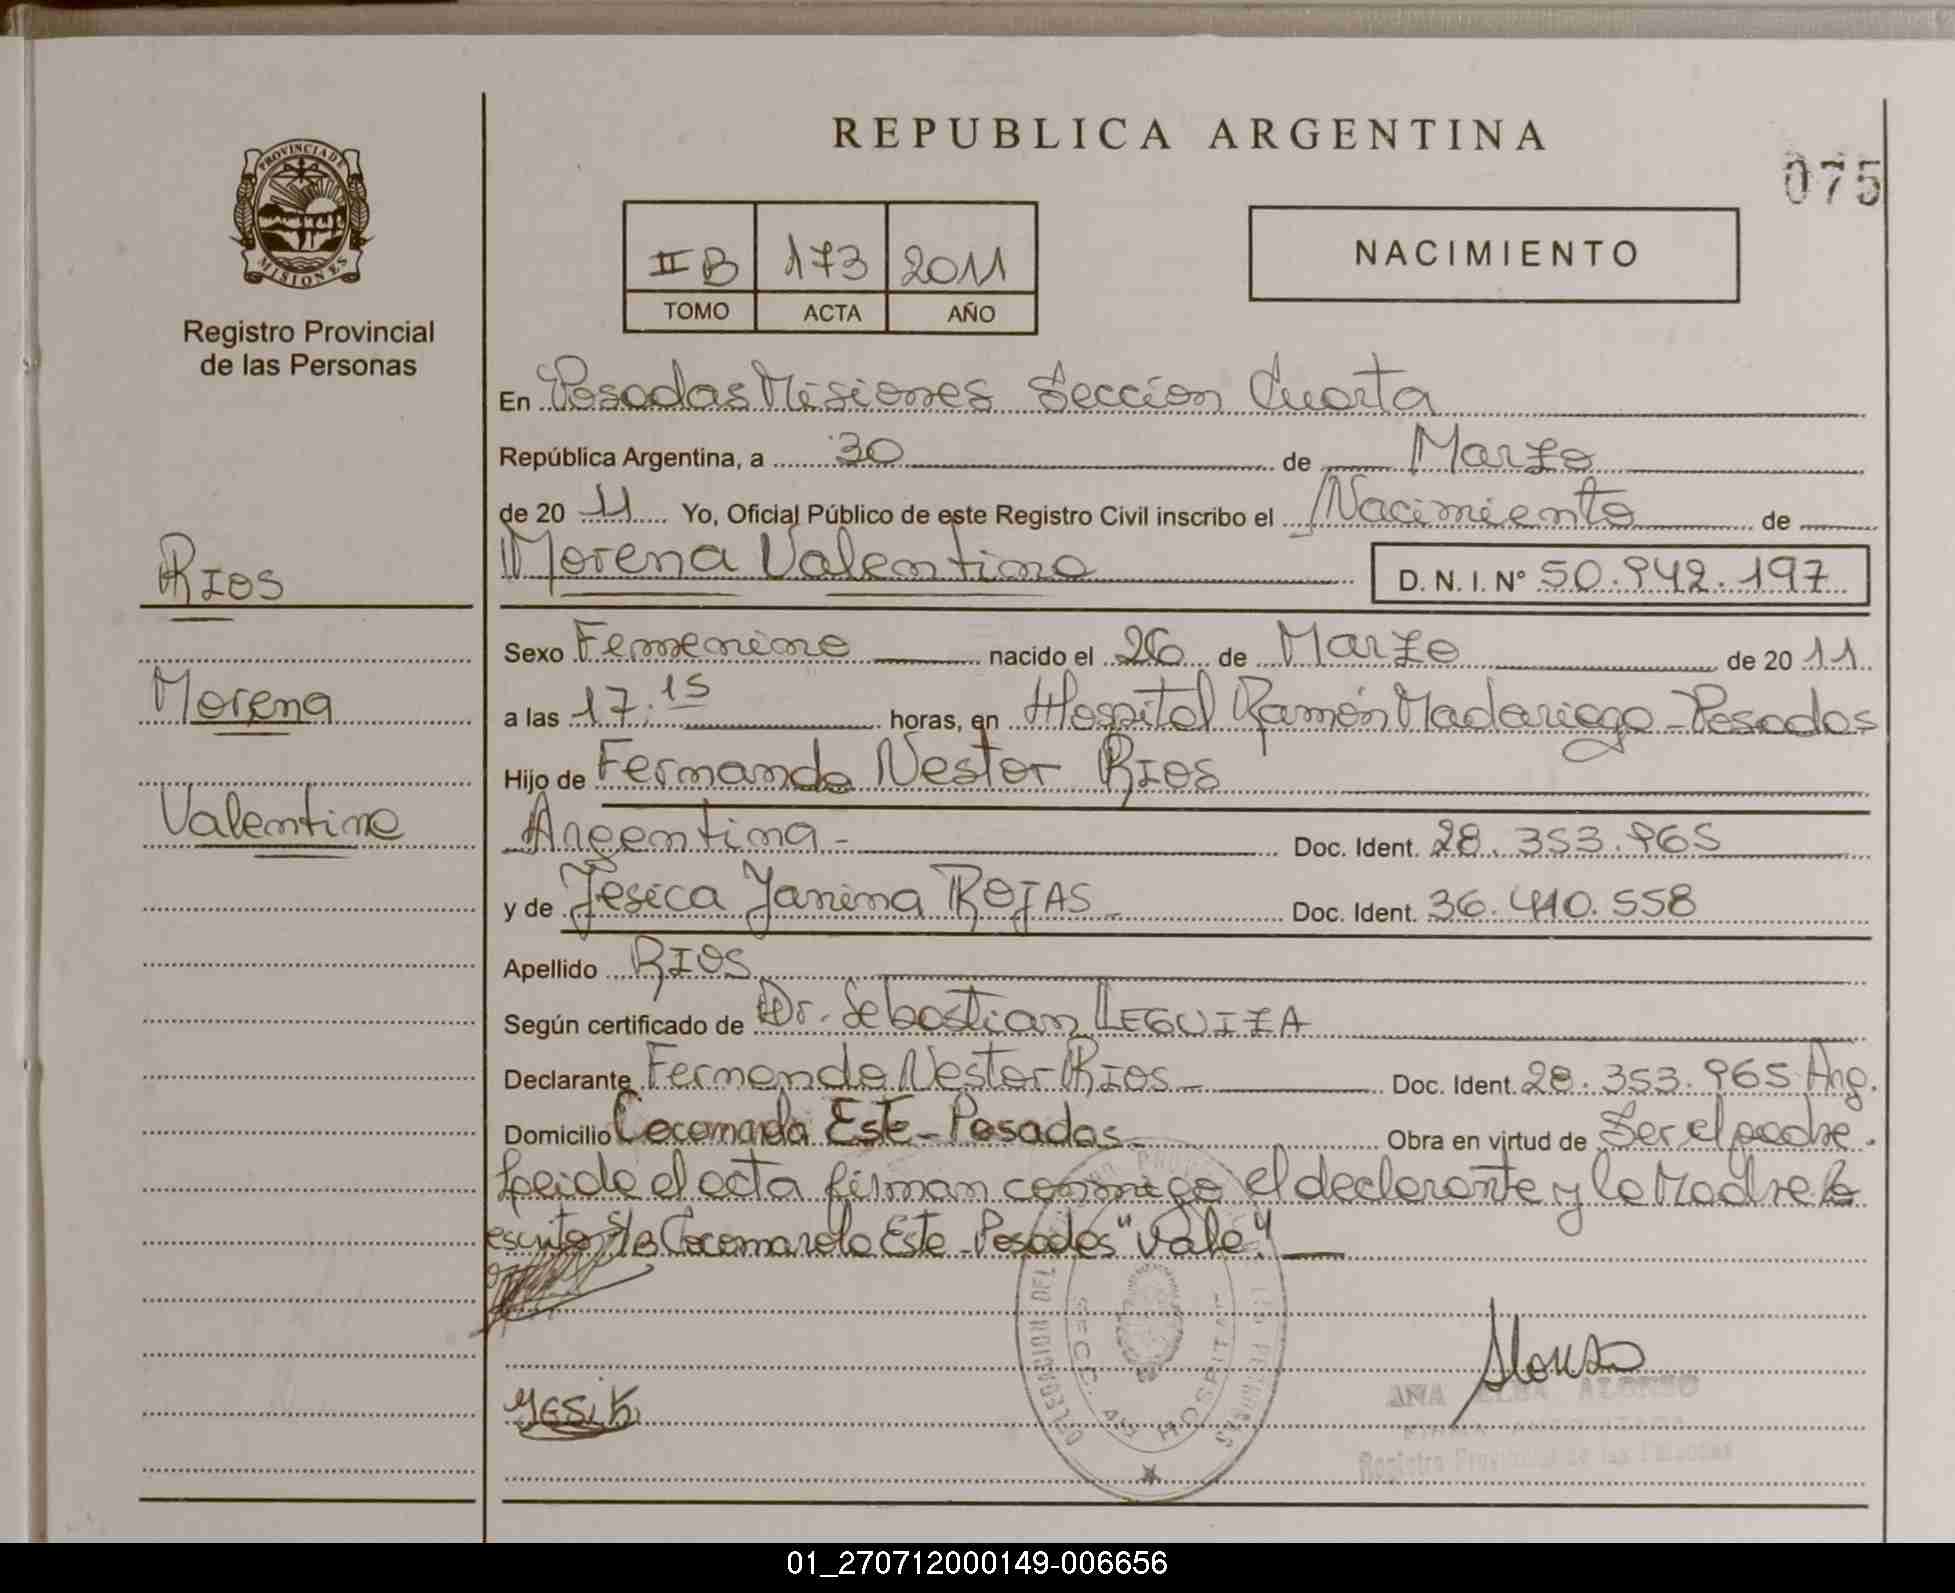 REPUBLICA ARGENTINA
075
PROVINCIA DE
MISIONES
Registro Provincial
de las Personas
II B 173 2011
TOMO ACTA AÑO
NACIMIENTO
En Posadas Misiones Sección Cuarta
República Argentina, a 30 de Marzo
de 20 11 Yo, Oficial Público de este Registro Civil inscribo el Nacimiento de
Morena Valentina D. N. I. N° 50.942.197
RIOS
Morena
Valentina
Sexo Femenino nacido el 26 de Marzo de 20 11
a las 17.15 horas, en Hospital Ramón Madariaga - Posadas
Hijo de Fernando Nestor RIOS
Argentina - Doc. Ident. 28.353.965
y de Jesica Yanina ROJAS Doc. Ident. 36.410.558
Apellido RIOS
Según certificado de Dr. Sebastian LEGUIZA
Declarante Fernando Nestor RIOS Doc. Ident. 28.353.965 Arg.
Domicilio Cocomarola Este - Posadas Obra en virtud de Ser el padre.
Leido el acta firman conmigo el declarante y la Madre Lo
escrito S/B Cocomarola Este - Posadas "Vale"
YESIK
Alonso
ANA ELBA ALONSO
Registro Provincial de las Personas
DELEGACION DEL
SECC. 4ta HOSPITAL
01_270712000149-006656